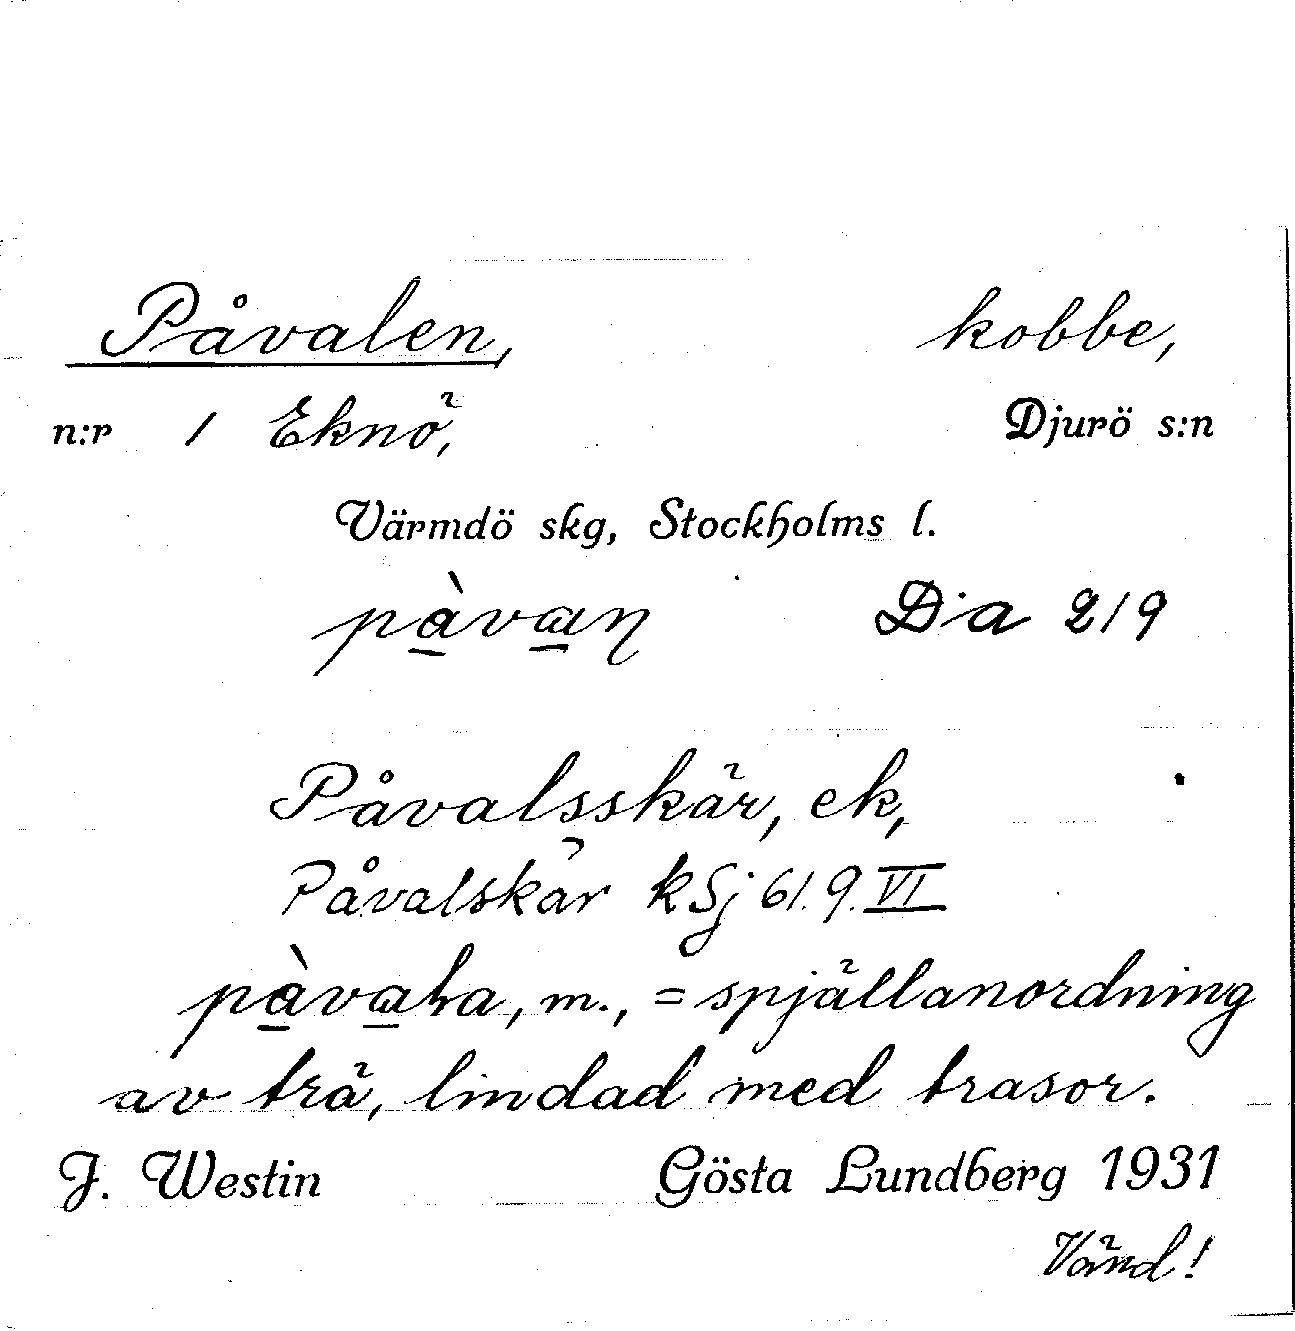 Påvalen, kobbe,
n:r 1 Eknö, Djurö s:n
Värmdö skg, Stockholms l.
pàvaη Dia 219
Påvalsskär, ek,
Påvalskär kSj 61.9.VI
pàvaƚa, m., = spjällanordning
av trä, lindad med trasor.
J. Westin Gösta Lundberg 1931
Vänd!